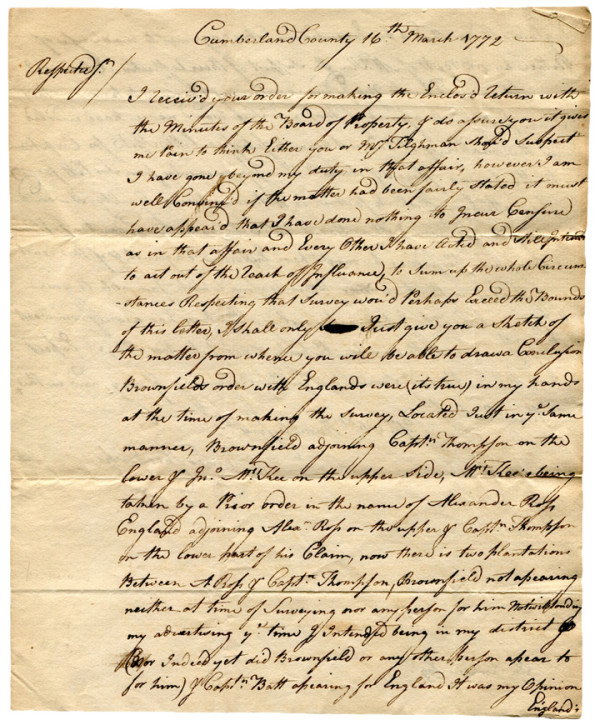 Cumberland County 16th March 1772
Respected Sr
I Receiv'd your order for making the Enclos'd Return with
the Minutes of the Board of Property, & do assure you it gives
me Pain to think Either you or Mr Tilghman Shou'd Suspect
I have gone beyond my duty in that affair, however I am
well Convinc'd if the matter had been fairly Stated it must
have appear'd that I have done nothing to Incur Censure
as in that affair and Every Other I have Acted and Still Intend
to act out of the Reach of Influance, to Sum up the whole Circum
-stances Respecting that Survey wou'd Perhaps Exceed the Bounds
of this letter, I shall only Just give you a Sketch of
the matter from whence you will be able to draw a Conclusion
Brownfields order with Englands were (its true) in my hands
at the time of making the Survey, Located Just in ye Same
manner, Brownfield adjoining Captn Thompson on the
lower & Jno McKee on the upper Side, McKee's being
taken by a Prior order in the name of Alexander Ross
England adjoining Alexr Ross on the upper & Captn Thompson
on the lower part of his Claim, now there is two plantations
Between A Ross & Captn Thompson, (Brownfield not apearing
neither at time of Surveying nor any person for him Notwithstanding
my advertising ye time I Intended being in my district
(nor Indeed yet did Brownfield or any other person apear to
for him) & Captn Batt apearing for England It was my Opinion
England's